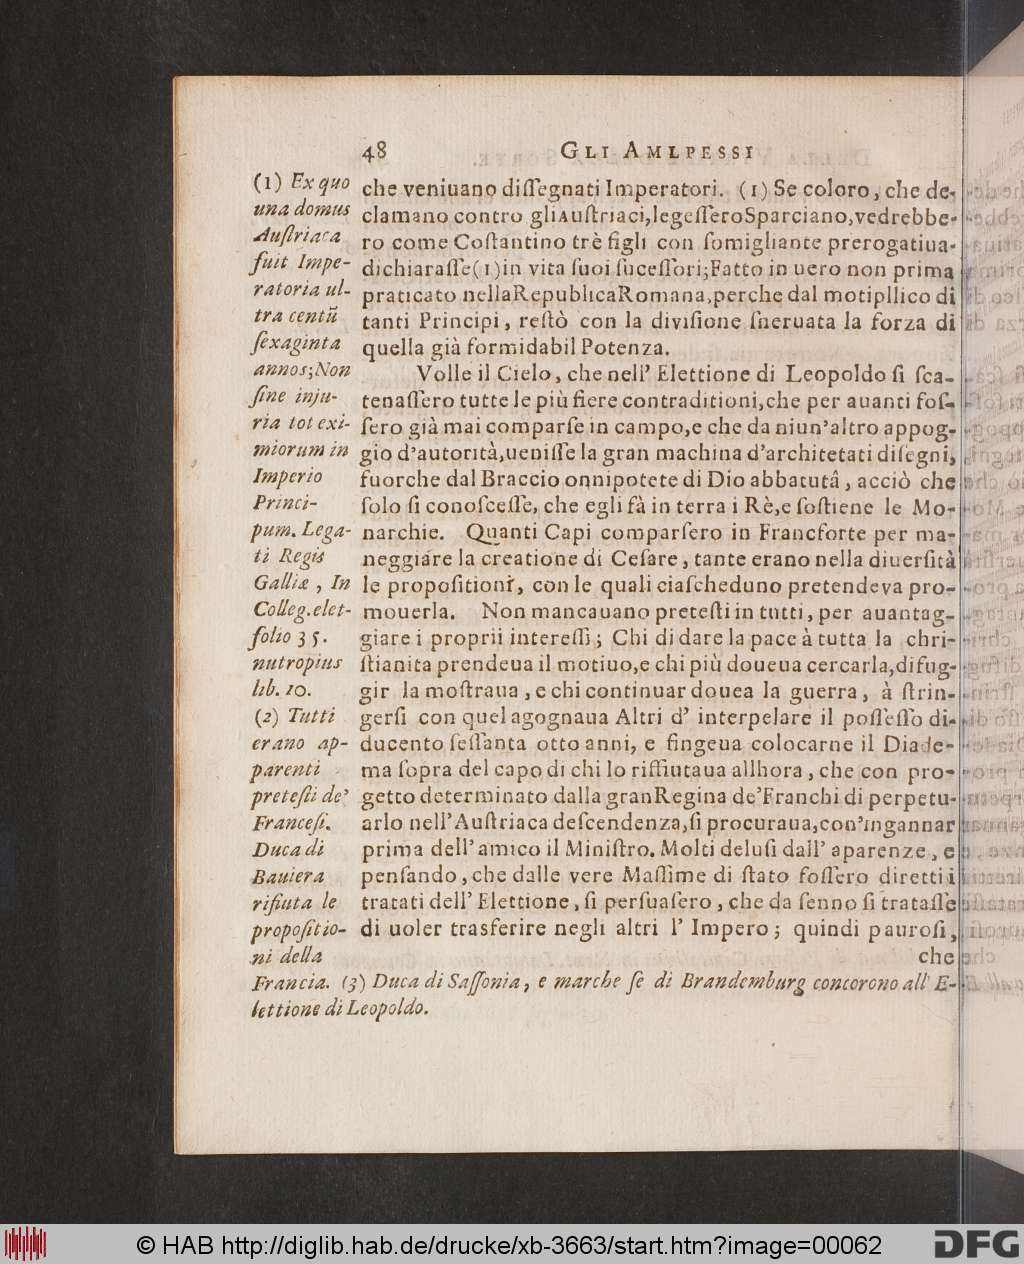 48 GLI AMLPESSI
che veniuano diſſegnati Imperatori. (1) Se coloro, che de-
clamano contro gliAuſtriaci,legeſſeroSparciano,vedrebbe-
ro come Coſtantino trè figli con ſomigliante prerogatiua-
dichiaraſſe(1)in vita ſuoi ſuceſſori;Fatto in uero non prima
praticato nellaRepublicaRomana,perche dal motipllico di
tanti Principi, reſtò con la diviſione ſneruata la forza di
quella già formidabil Potenza.
Volle il Cielo, che nell' Elettione di Leopoldo ſi ſca-
tenaſſero tutte le più fiere contraditioni,che per auanti foſ-
ſero già mai comparſe in campo,e che da niun'altro appog-
gio d'autorità,ueniſſe la gran machina d'architetati diſegni,
fuorche dal Braccio onnipotete di Dio abbatutâ, acciò che
ſolo ſi conoſceſſe, che egli fà in terra i Rè,e ſoſtiene le Mo-
narchie. Quanti Capi comparſero in Francforte per ma-
neggiare la creatione di Ceſare, tante erano nella diuerſità
le propoſitioni, con le quali ciaſcheduno pretendeva pro-
mouerla. Non mancauano preteſti in tutti, per auantag-
giare i proprii intereſſi; Chi di dare la pace à tutta la chri-
ſtianita prendeua il motiuo,e chi più doueua cercarla,difug-
gir la moſtraua, e chi continuar douea la guerra, à ſtrin-
gerſi con quel agognaua Altri d' interpelare il poſſeſſo di-
ducento ſeſſanta otto anni, e fingeua colocarne il Diade-
ma ſopra del capo di chi lo riffiutaua allhora, che con pro-
getto determinato dalla granRegina de'Franchi di perpetu-
arlo nell'Auſtriaca deſcendenza,ſi procuraua,con'ingannar
prima dell' amico il Miniſtro. Molti deluſi dall' aparenze, e
penſando, che dalle vere Maſſime di ſtato foſſero diretti i
tratati dell' Elettione, ſi perſuaſero, che da ſenno ſi trataſſe
di uoler trasferire negli altri l' Impero; quindi pauroſi,
che
(1) Ex quo
una domus
Auſtriaca
fuit Impe-
ratoria ul-
tra centũ
ſexaginta
annos;Non
ſine inju-
ria tot exi-
miorum in
Imperio
Princi-
pum. Lega-
ti Regis
Galliæ, In
Colleg.elet-
folio 35.
nutropius
lib. 10.
(2) Tutti
erano ap-
parenti
preteſti de'
Franceſi.
Duca di
Bauiera
rifiuta le
propoſitio-
ni della
Francia. (3) Duca di Saſſonia, e marche ſe di Brandemburg concorono all' E-
lettione di Leopoldo.
© HAB http://diglib.hab.de/drucke/xb-3663/start.htm?image=00062
DFG